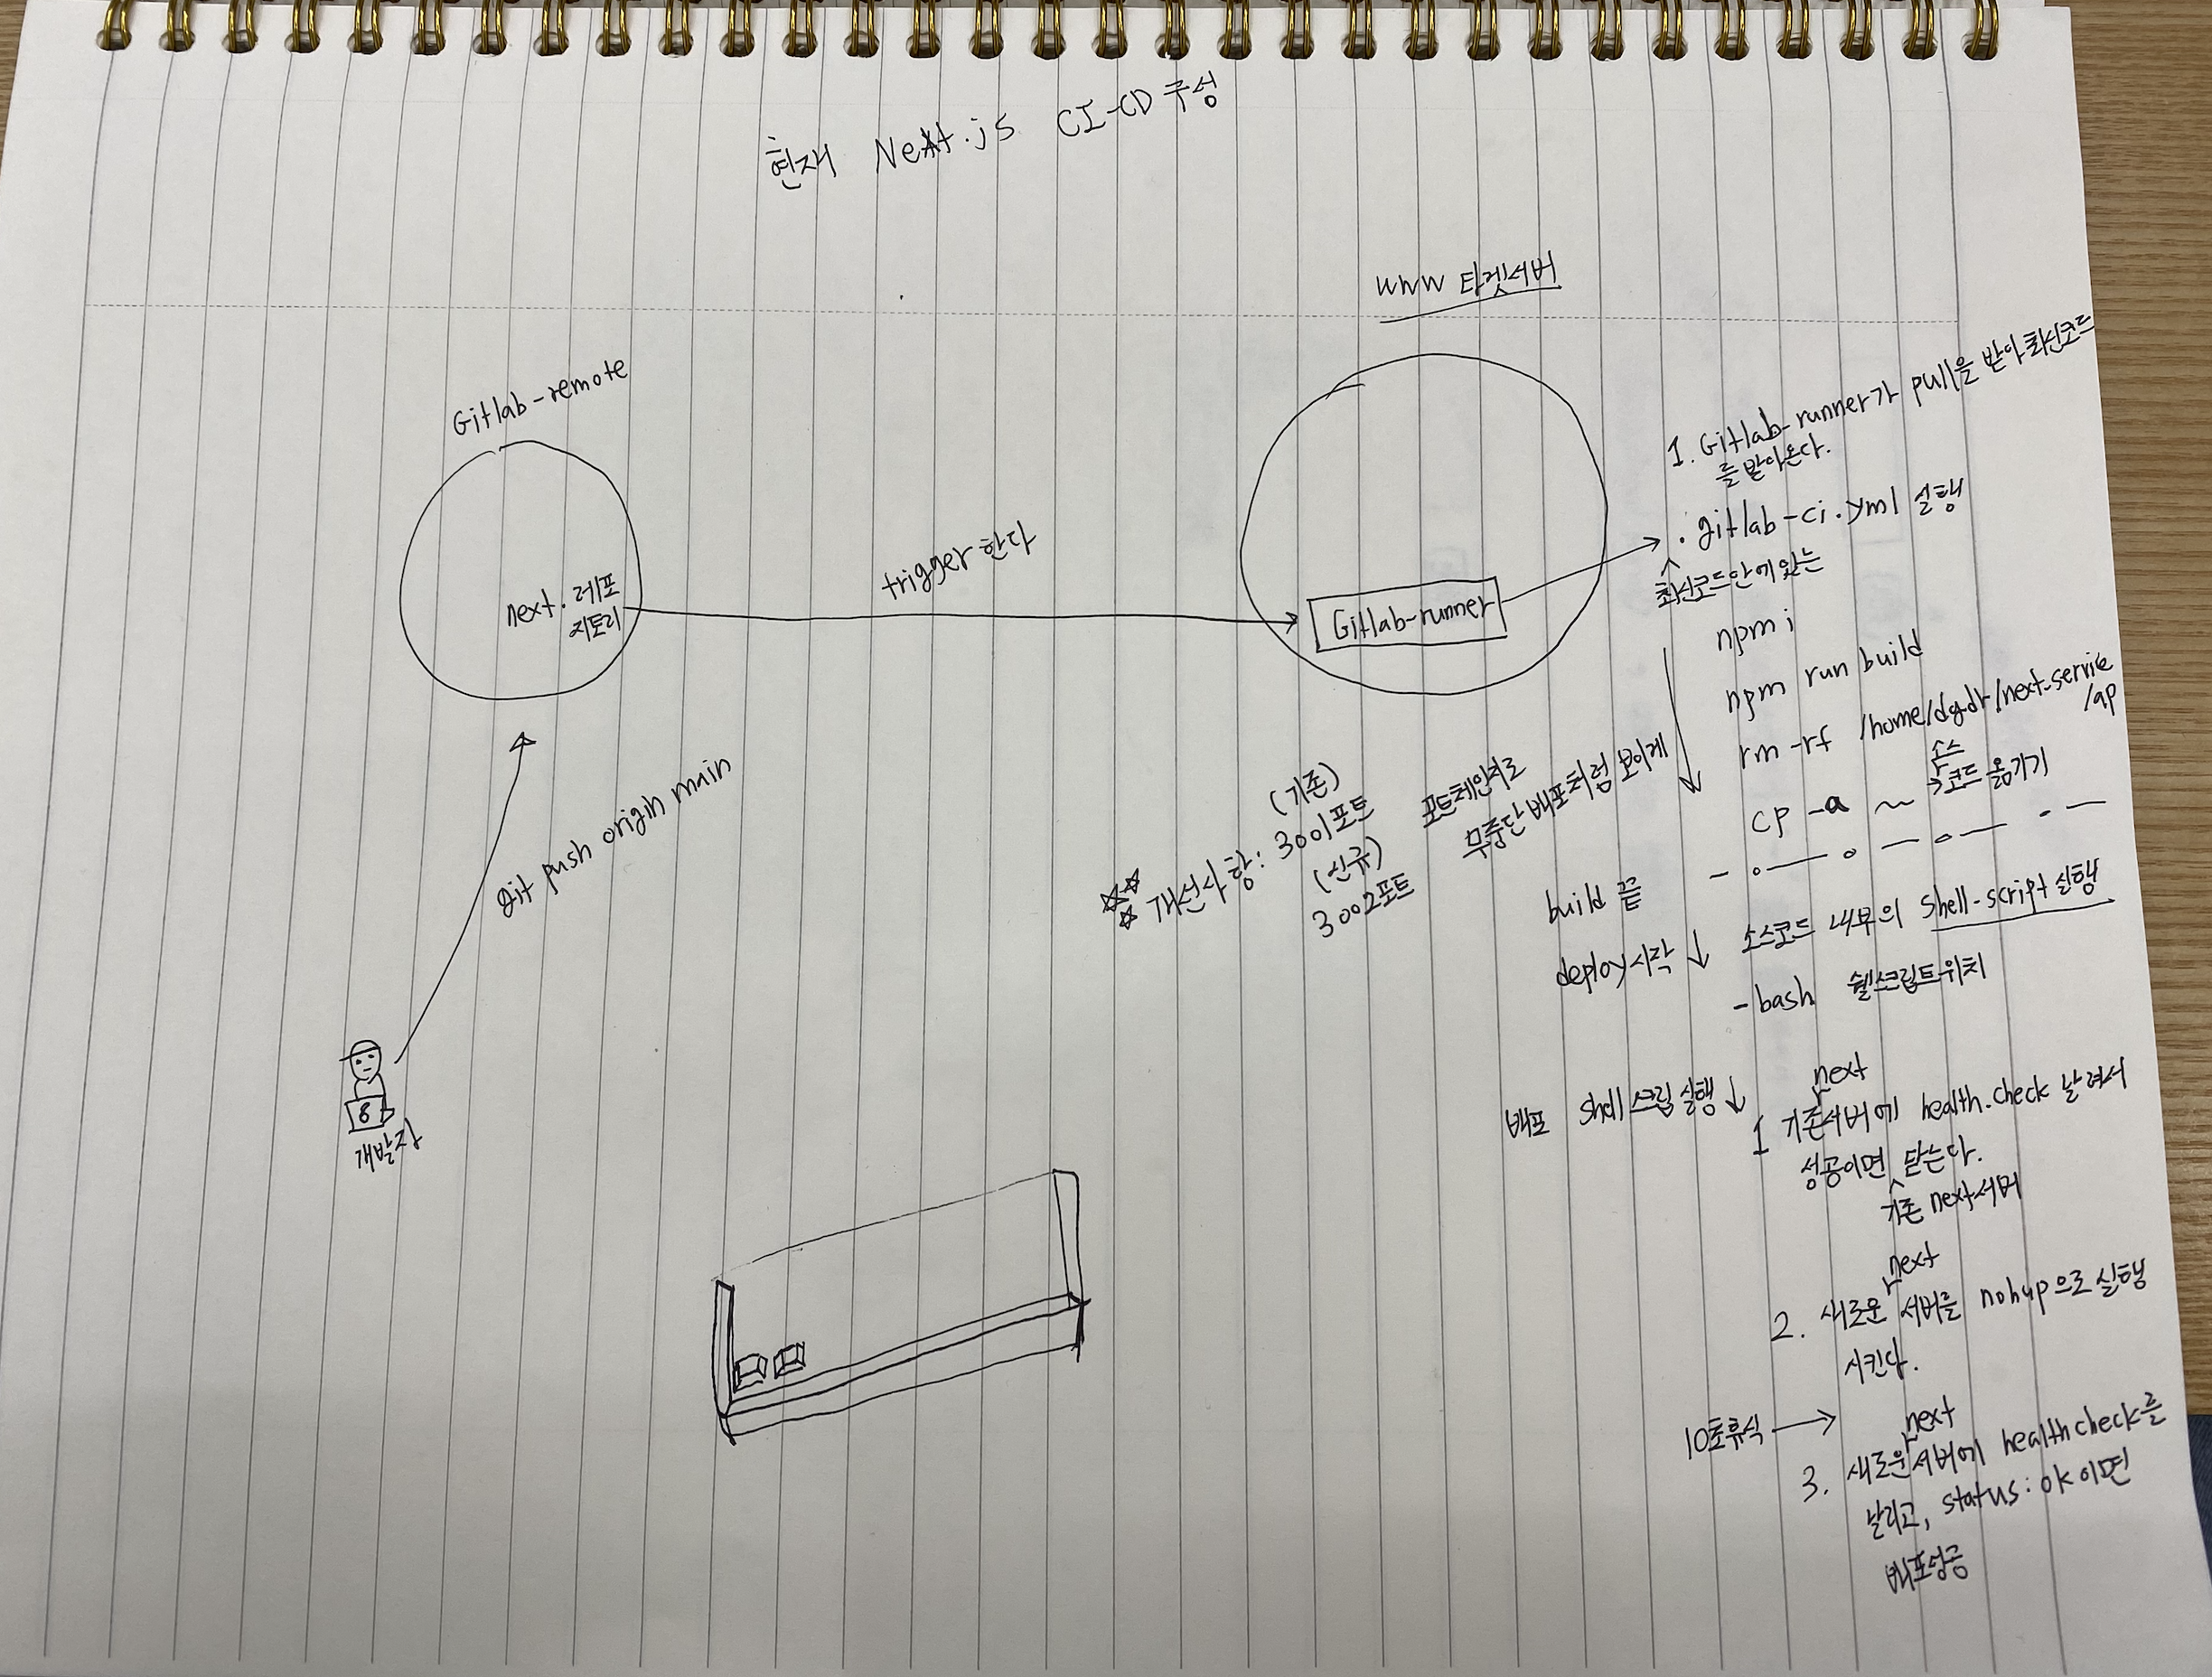 현재 Next.js CI-CD 구성
www 타겟서버
Gitlab-remote
next.레포
지토리
trigger 한다
Gitlab-runner
git push origin main
개발자
1. Gitlab-runner가 pull을 받아 최신코드
를 받아온다.
.gitlab-ci.yml 실행
최신코드안에 있는
npm i
npm run build
rm -rf /home/dgdr/next-service
/ap
cp -a ~ → 소스
코드 옮기기
개선사항: 3001포트
(기존)
(신규)
3002포트
포트체인지로
무중단 배포처럼 보이게
build 끝
deploy 시작 ↓ 소스코드 내부의 shell-script 실행
- bash 쉘스크립트위치
배포 shell스크립 실행 ↓
next
1 기존서버에 health.check 날려서
성공이면 닫는다.
기존 next서버
next
2. 새로운 서버를 nohup으로 실행
시킨다.
10초휴식 →
next
3. 새로운서버에 healthcheck를
날리고, status: ok 이면
배포성공